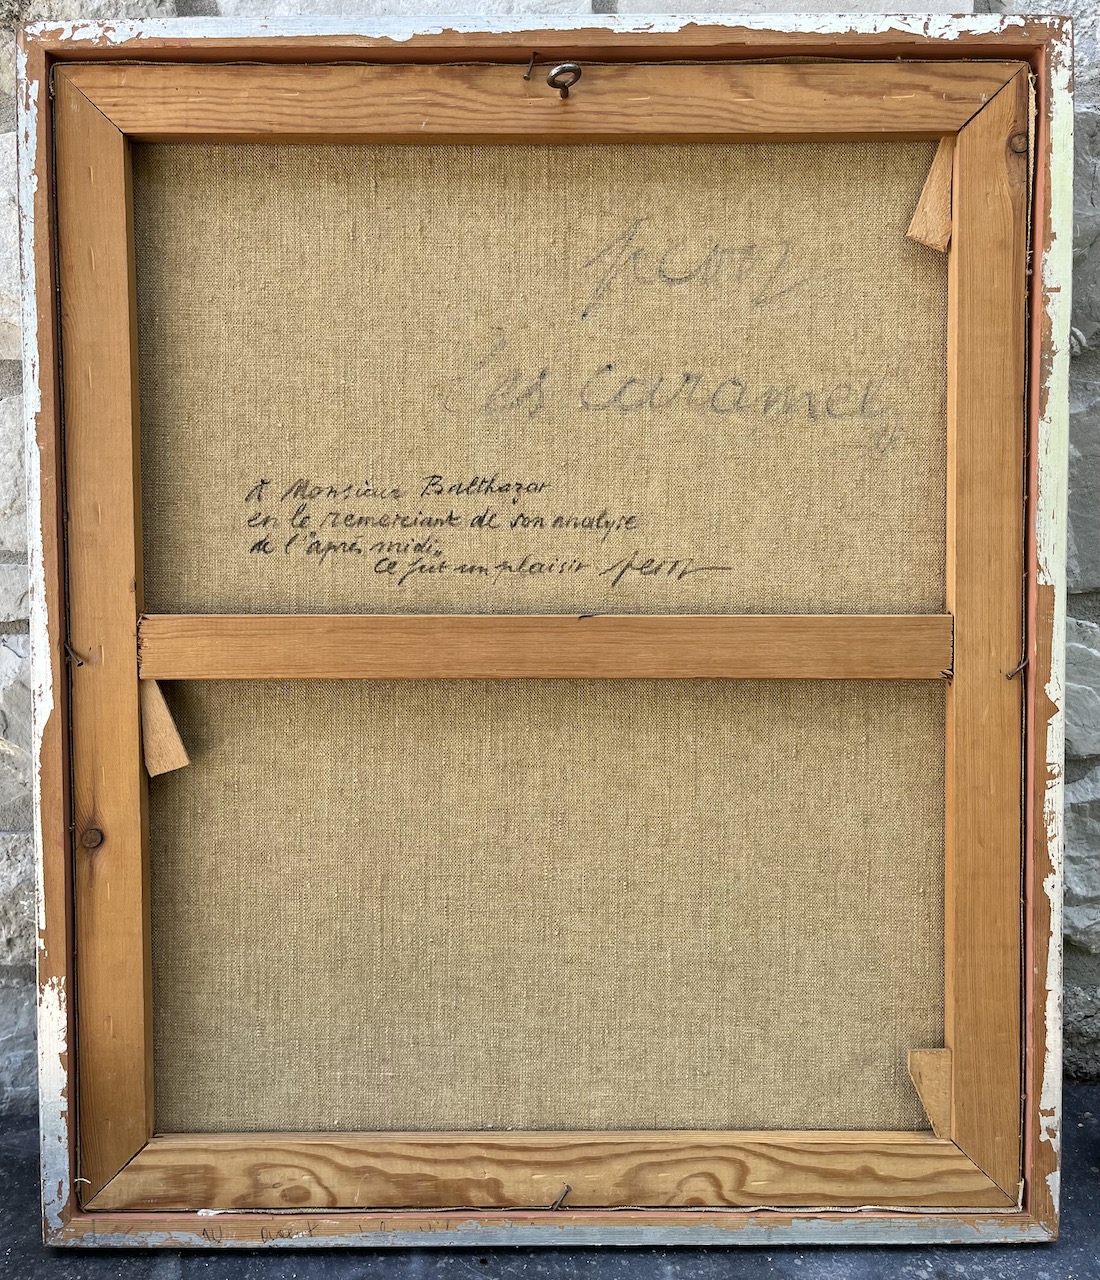 Les Caramels
à Monsieur Balthazar
en le remerciant de son analyse
de l'"après midi"
ce fut un plaisir